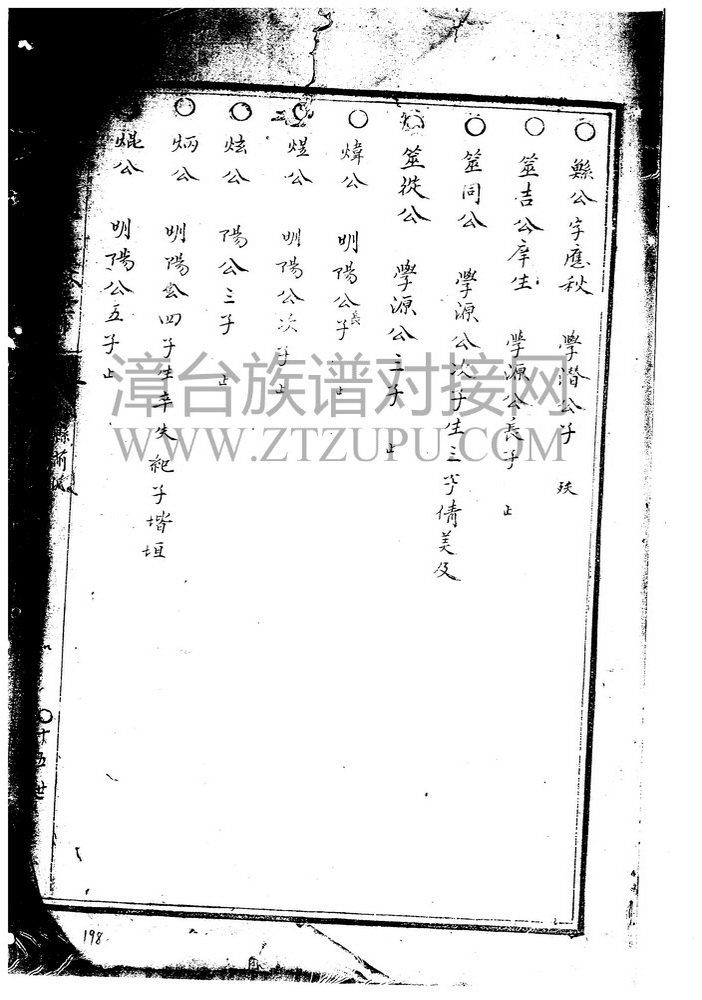 縣公字應秋 學潛公子 殀
筮吉公庠生 學源公長子 止
筮同公 學源公次子生三子倩美及
筮從公 學源公三子 止
煒公 明陽公長子 止
煜公 明陽公次子 止
炫公 陽公三子 止
炳公 明陽公四子生卒失紀子堦垣
焜公 明陽公五子 止
十五世
198
漳台族谱对接网
WWW.ZTZUPU.COM